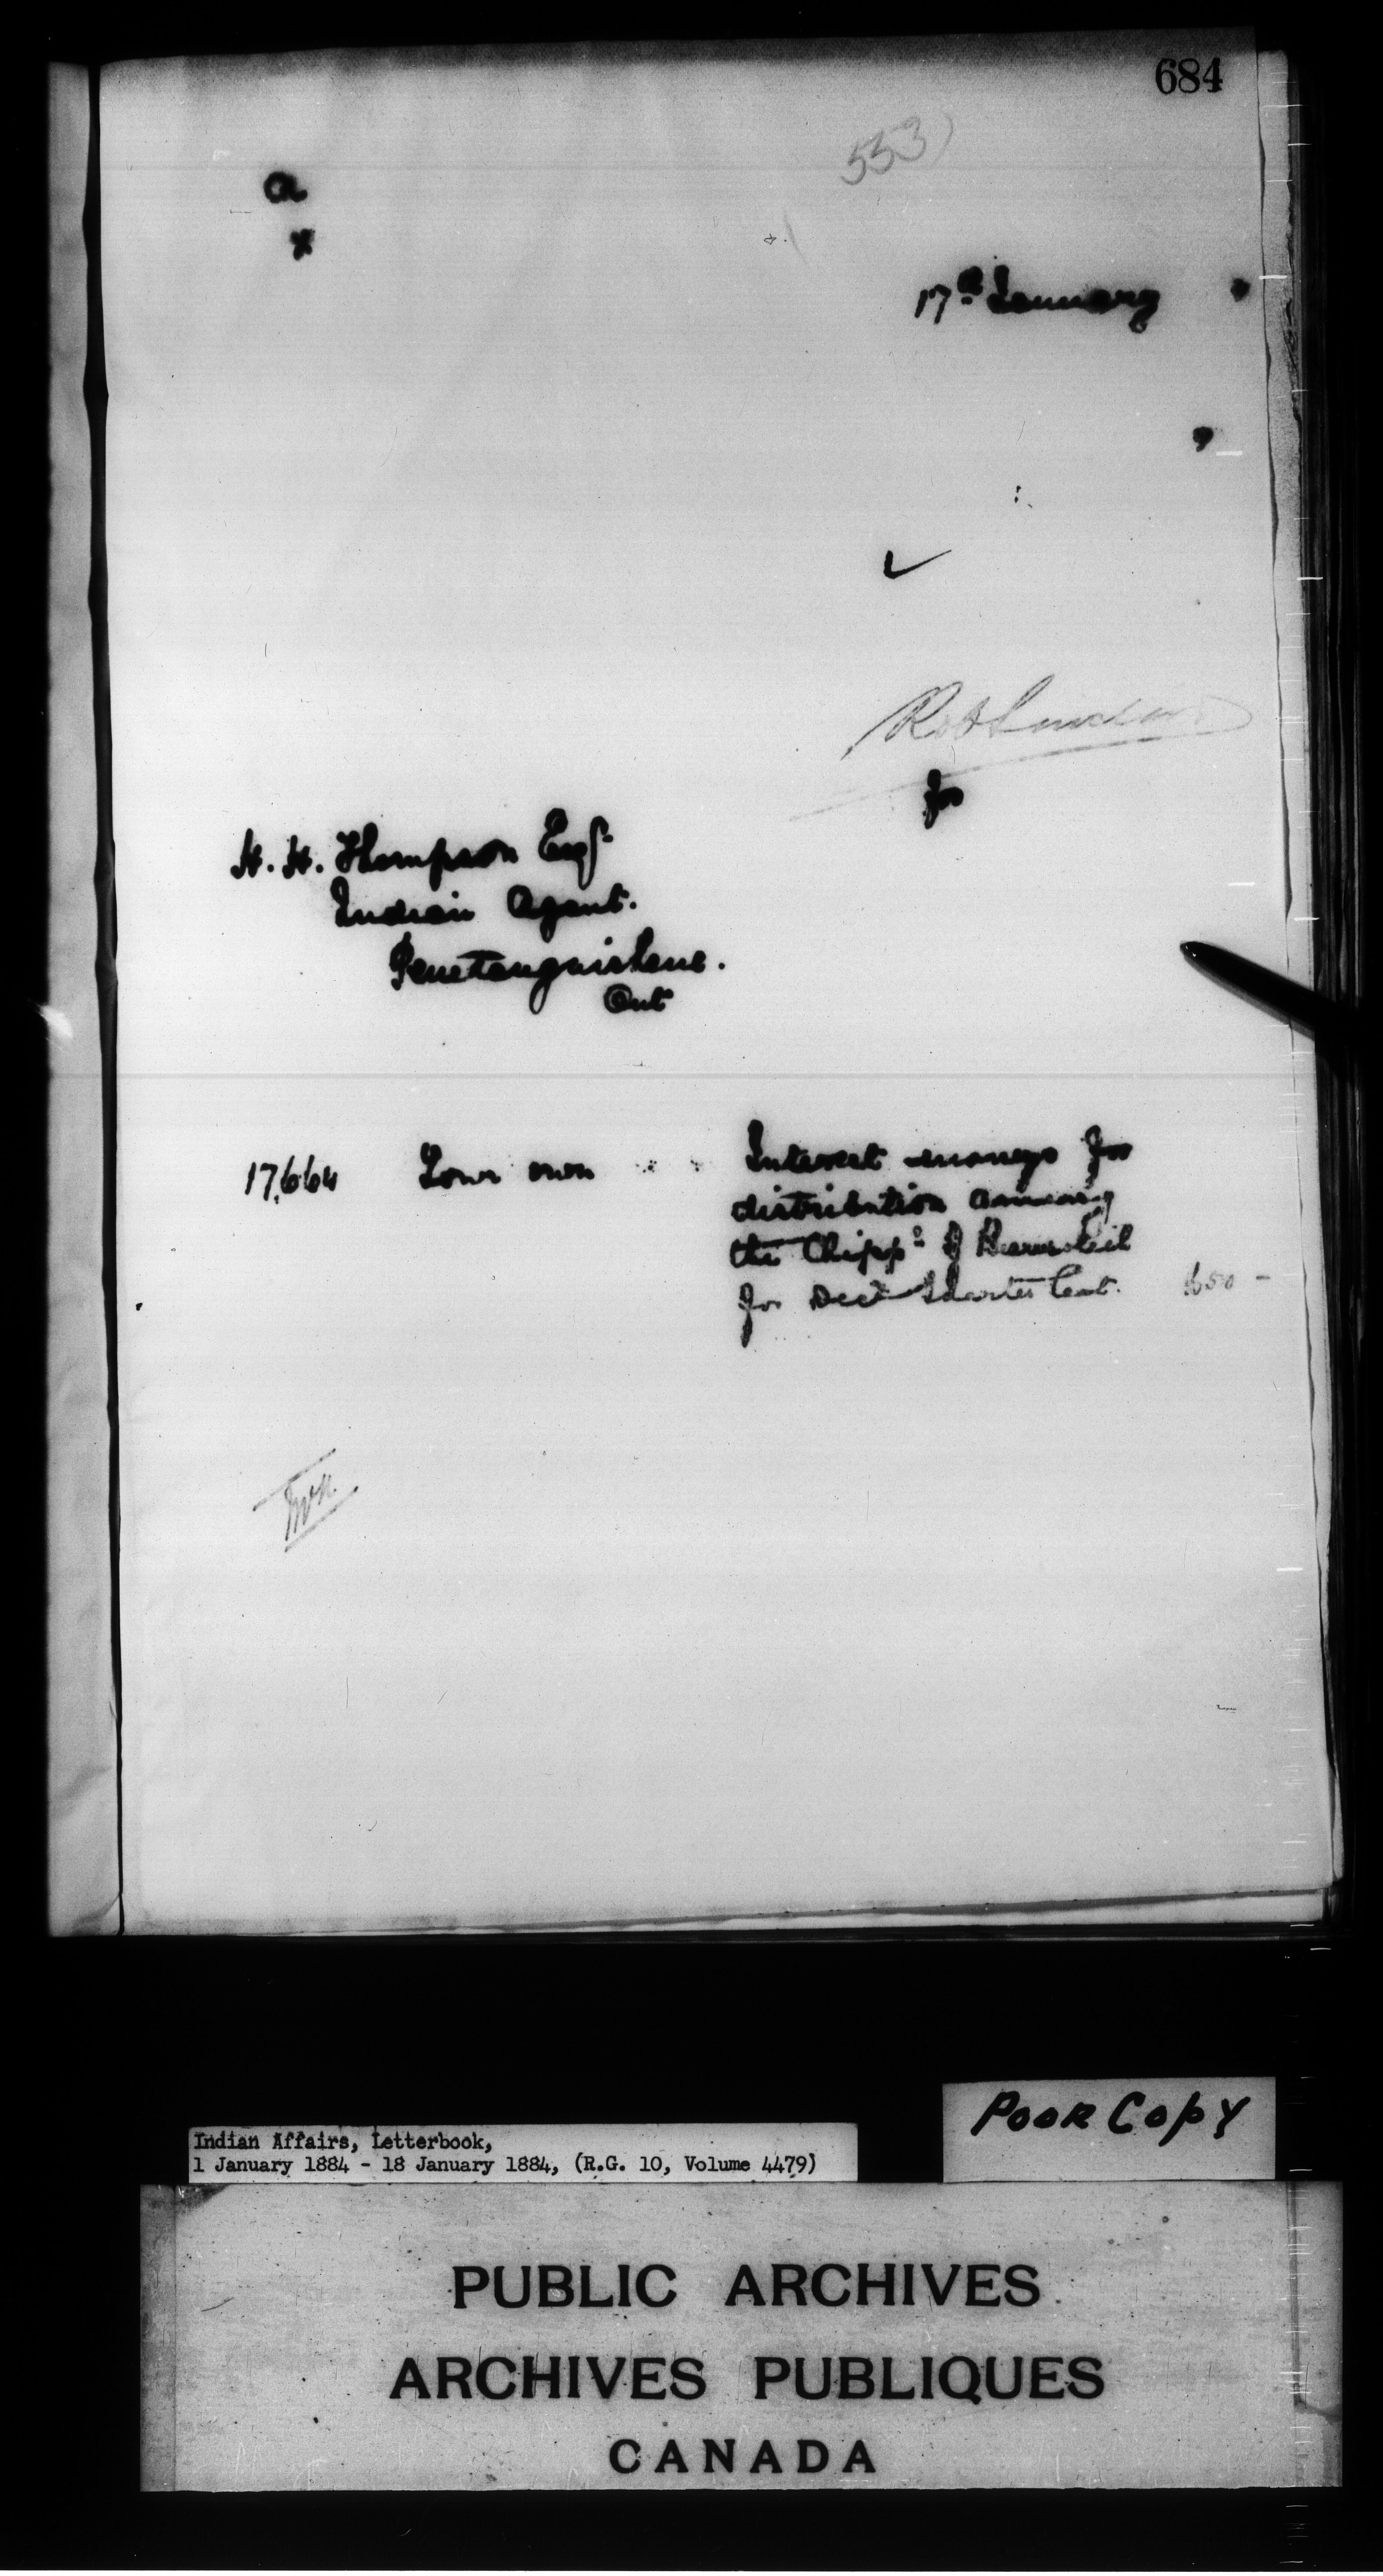 684
553
a
x
17th January
Rob Sinclair
for
H. H. Thompson Esqr
Indian Agent.
Penetanguishene.
Ont
17,664 Your own Interest moneys for
distribution among
the Chipps of Beausoleil
for Decr Quarter last. 650 -
Poor Copy
Indian Affairs, Letterbook,
1 January 1884 - 18 January 1884, (R.G. 10, Volume 4479)
PUBLIC ARCHIVES
ARCHIVES PUBLIQUES
CANADA